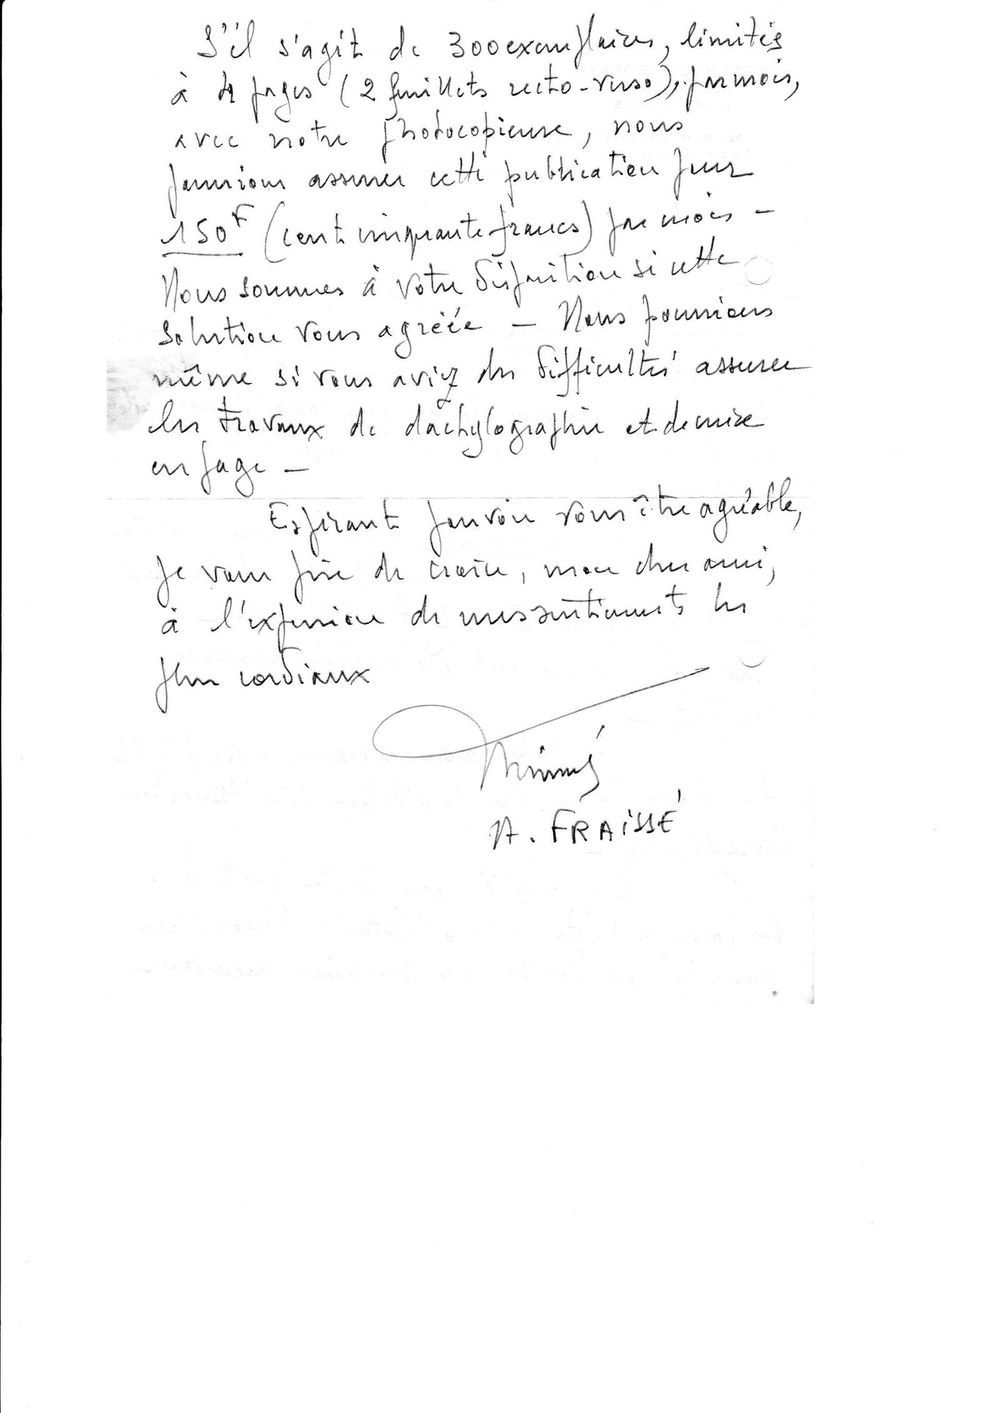 S'il s'agit de 300 exemplaires, limités
à 4 pages (2 feuillets recto-verso), par mois,
avec notre photocopieuse, nous
pourrions assurer cette publication pour
150F (cent cinquante francs) par mois -
Nous sommes à votre disposition si cette
solution vous agréée - Nous pourrions
même si vous aviez des difficultés assurer
les travaux de dactylographie et de mise
en page -
Espérant pouvoir vous être agréable,
je vous prie de croire, mon cher ami,
à l'expression de mes sentiments les
plus cordiaux
A. FRAISSÉ